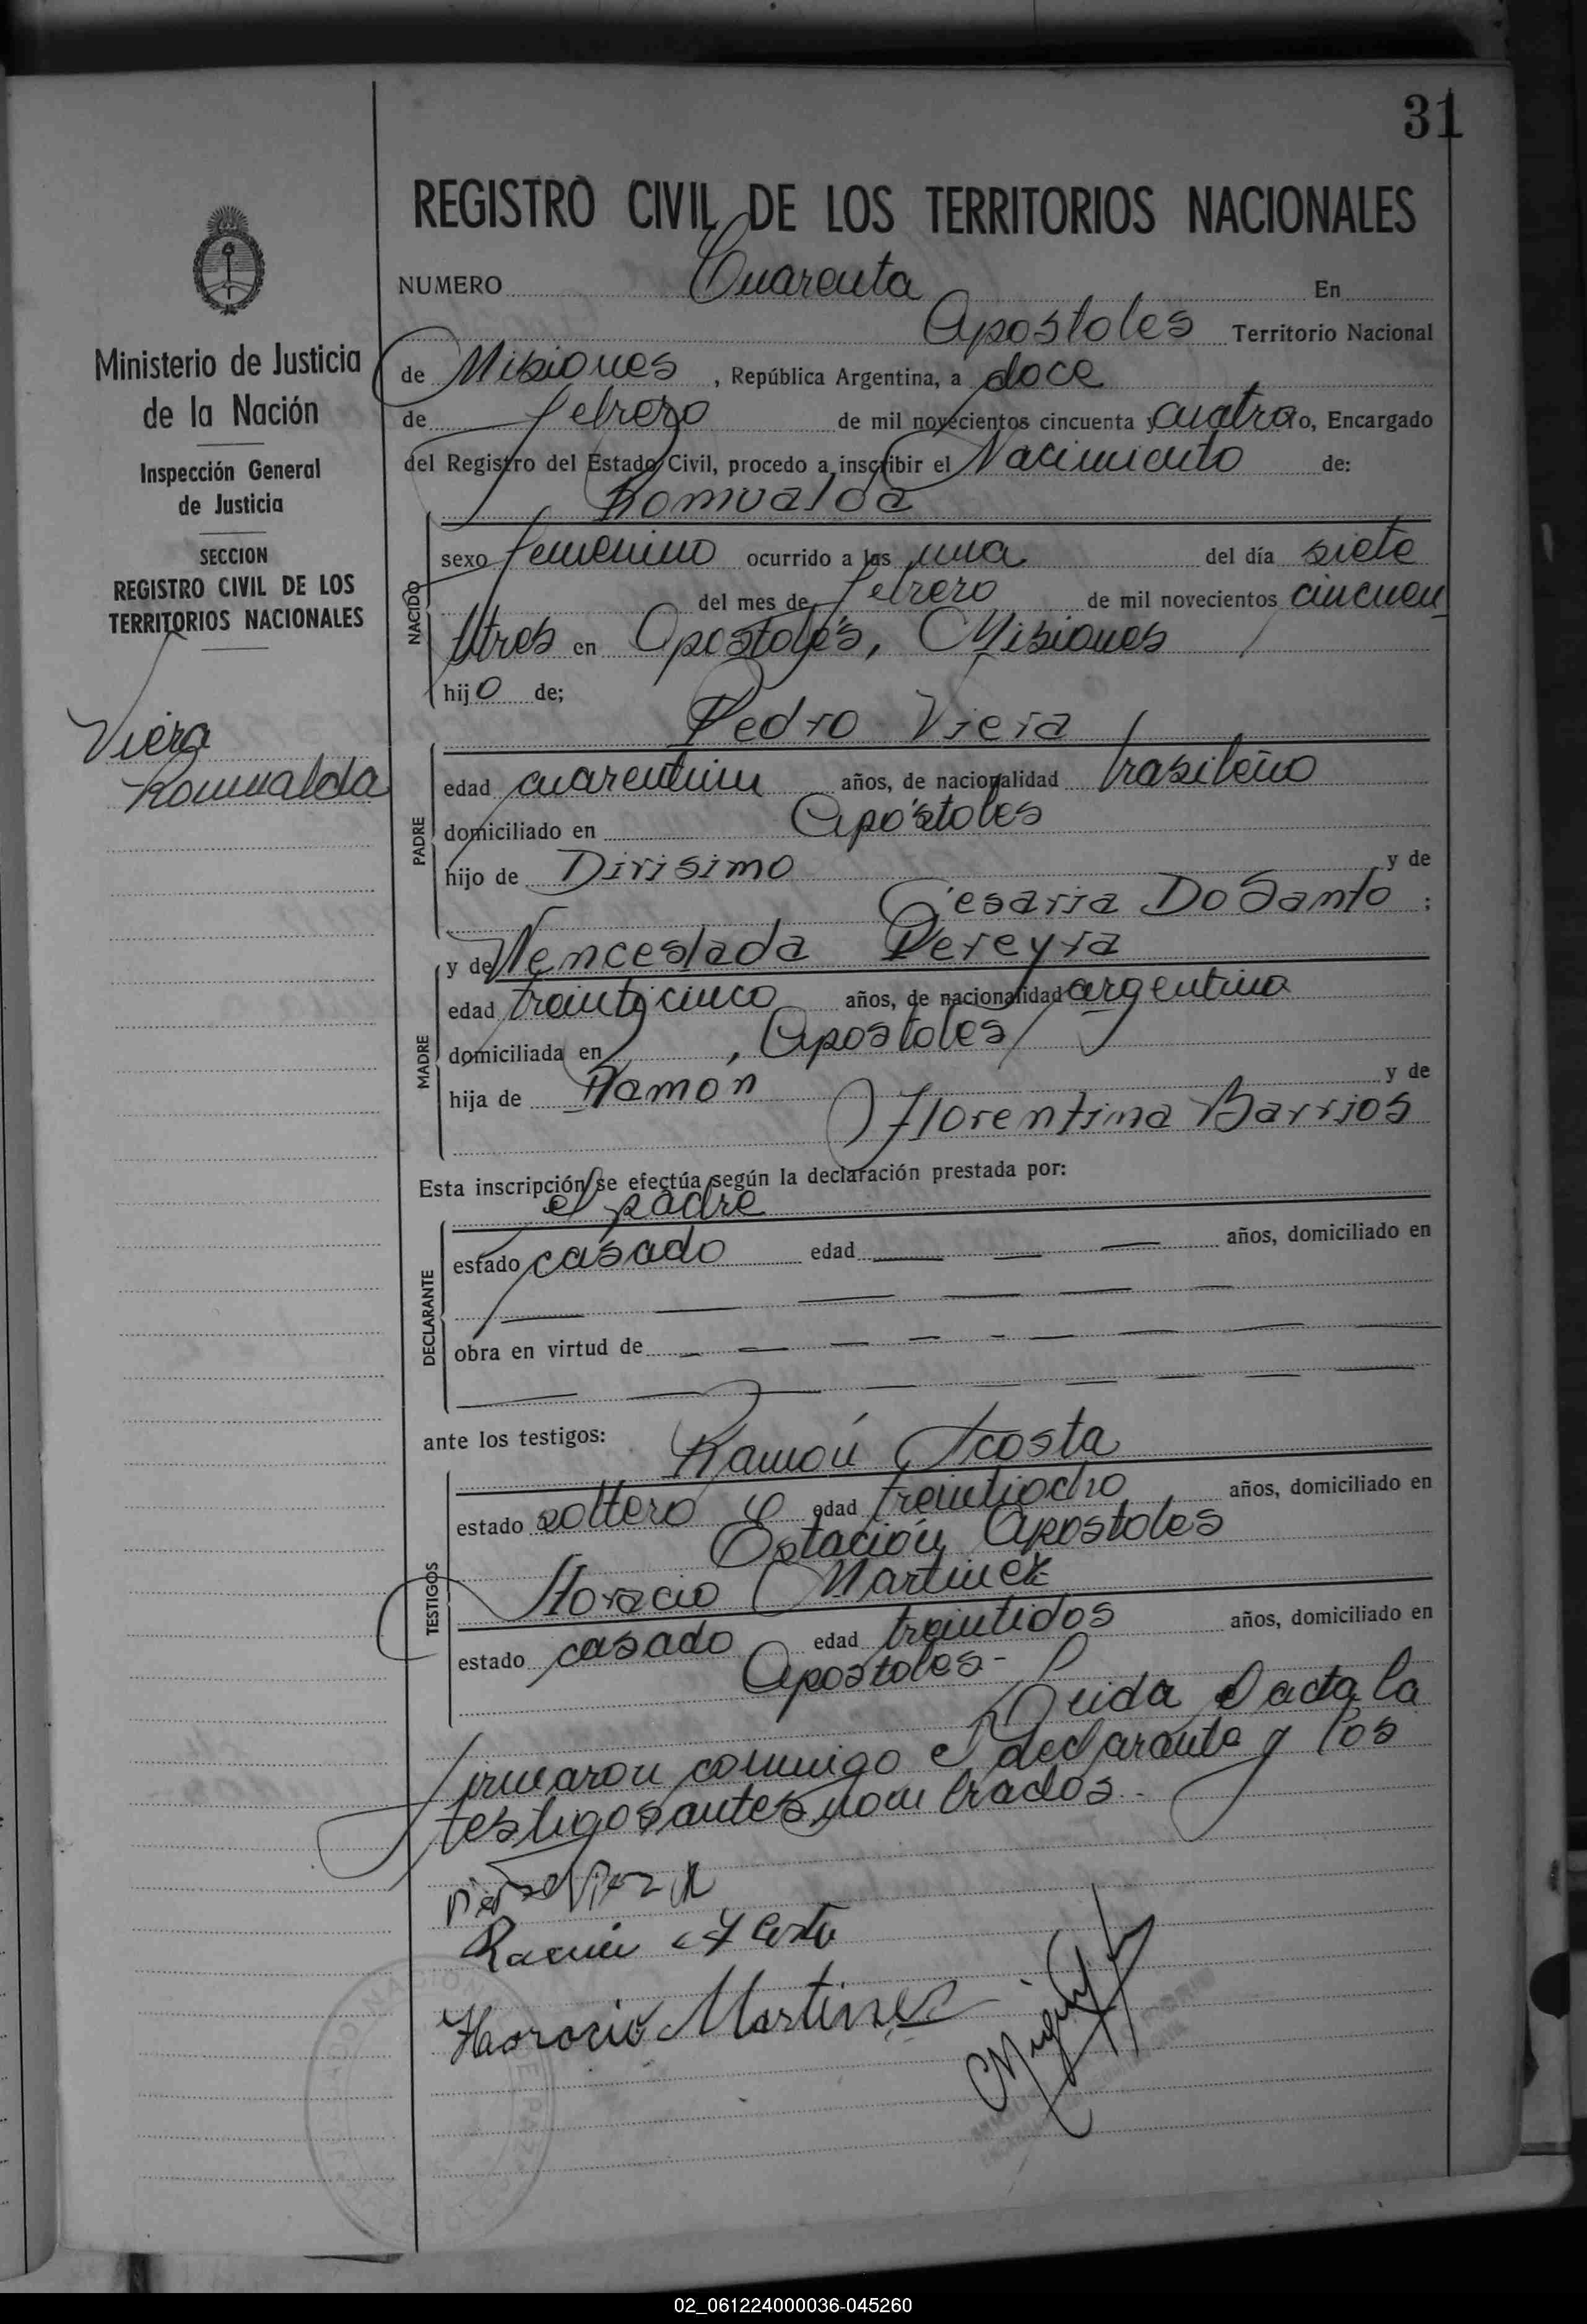 31
REGISTRO CIVIL DE LOS TERRITORIOS NACIONALES
Ministerio de Justicia
de la Nación
Inspección General
de Justicia
SECCION
REGISTRO CIVIL DE LOS
TERRITORIOS NACIONALES
Viera
Romualda
NUMERO Cuarenta En
Apostoles Territorio Nacional
de Misiones , República Argentina, a doce
de febrero de mil novecientos cincuenta y cuatro o, Encargado
del Registro del Estado Civil, procedo a inscribir el Nacimiento de:
Romualda
NACIDO
sexo femenino ocurrido a las una del día siete
del mes de febrero de mil novecientos cincuen
titres en Apostoles, Misiones
hijo de;
Pedro Viera
PADRE
edad cuarentiun años, de nacionalidad brasileño
domiciliado en Apóstoles
hijo de Dirisimo y de
Cesaria Do Santo ;
MADRE
y de Wenceslada Pereyra
edad treinticinco años, de nacionalidad argentina
domiciliada en , Apostoles
hija de Ramón y de
Florentina Barrios
Esta inscripción se efectúa según la declaración prestada por:
el padre
DECLARANTE
estado casado edad años, domiciliado en
obra en virtud de
ante los testigos:
Ramón Acosta
TESTIGOS
estado soltero edad treintiocho años, domiciliado en
Estación Apostoles
Horacio Martinez
estado casado edad treintidos años, domiciliado en
Apostoles-
Leida el acta la
firmaron conmigo el declarante y los
testigos antes nombrados.-
Ramon Acosta
Horacio Martinez
02_061224000036-045260